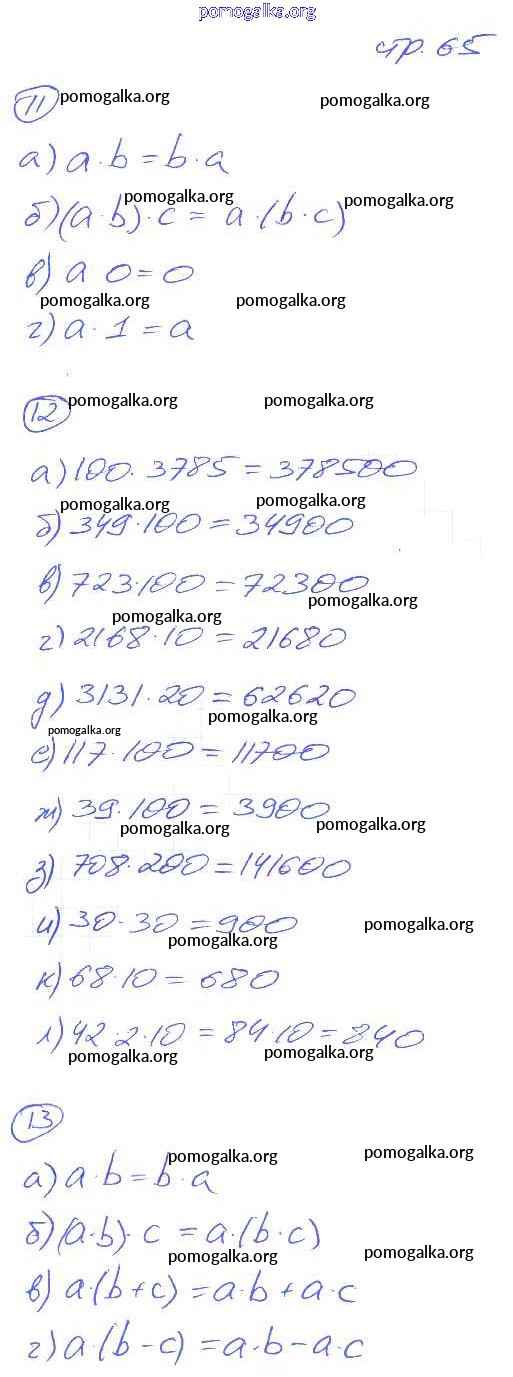 pomogalka.org
стр. 65
11 pomogalka.org pomogalka.org
а) a·b=b·a
pomogalka.org pomogalka.org
б) (a·b)·c = a·(b·c)
в) a 0=0
pomogalka.org pomogalka.org
г) a·1=a
12 pomogalka.org pomogalka.org
а) 100·3785=378500
pomogalka.org pomogalka.org
б) 349·100=34900
в) 723·100=72300
pomogalka.org pomogalka.org
г) 2168·10=21680
д) 3131·20=62620
pomogalka.org pomogalka.org
е) 117·100=11700
ж) 39·100=3900
pomogalka.org pomogalka.org
з) 708·200=141600
и) 30·30=900 pomogalka.org
pomogalka.org
к) 68·10=680
л) 42·2·10=84·10=840
pomogalka.org pomogalka.org
13
pomogalka.org pomogalka.org
а) a·b=b·a
б) (a·b)·c=a·(b·c)
pomogalka.org pomogalka.org
в) a·(b+c)=a·b+a·c
г) a·(b-c)=a·b-a·c